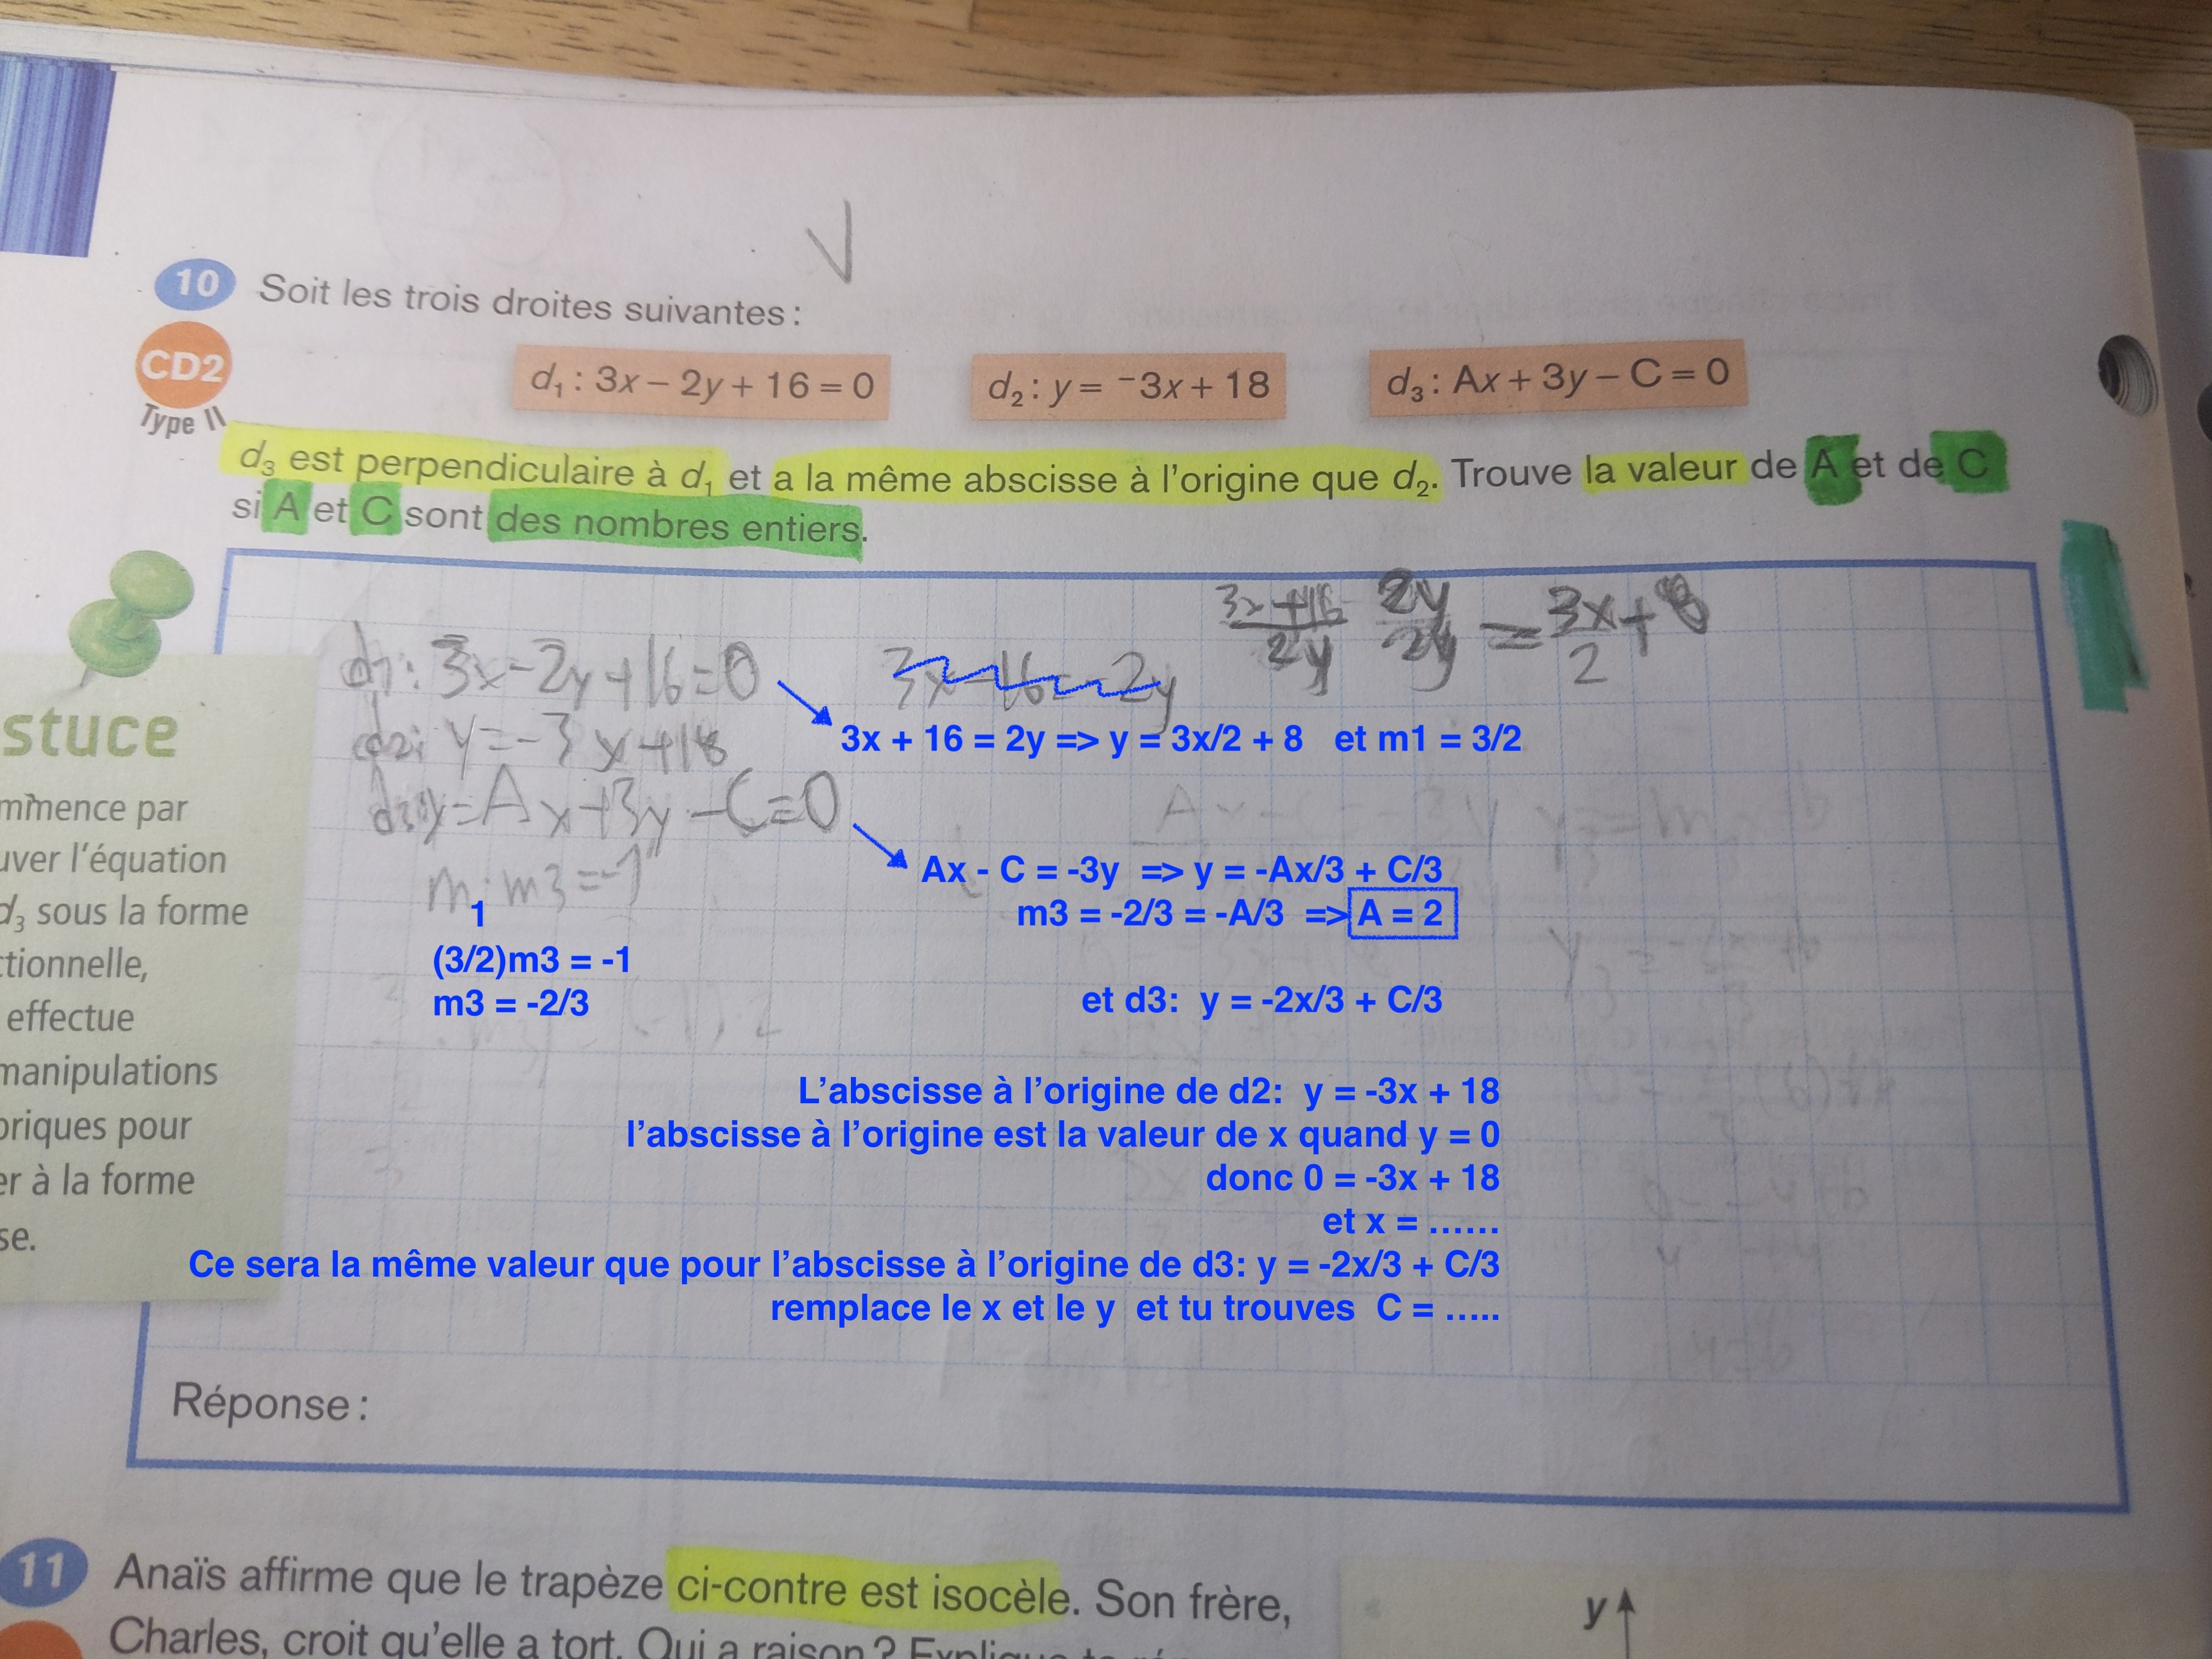 10 Soit les trois droites suivantes :
CD2
Type II
d₁ : 3x – 2y + 16 = 0
d₂ : y = ⁻3x + 18
d₃ : Ax + 3y – C = 0
d₃ est perpendiculaire à d₁ et a la même abscisse à l'origine que d₂. Trouve la valeur de A et de C
si A et C sont des nombres entiers.
3x+16 / 2y 2y/2y = 3x+8 / 2
d1: 3x-2y+16=0
3x-16=-2y
3x + 16 = 2y => y = 3x/2 + 8 et m1 = 3/2
d2: y=-3x+18
d3: y=Ax+3y-C=0
Ax - C = -3y => y = -Ax/3 + C/3
m · m3 = -1
1
m3 = -2/3 = -A/3 => A = 2
(3/2)m3 = -1
m3 = -2/3
et d3: y = -2x/3 + C/3
L'abscisse à l'origine de d2: y = -3x + 18
l'abscisse à l'origine est la valeur de x quand y = 0
donc 0 = -3x + 18
et x = ......
Ce sera la même valeur que pour l'abscisse à l'origine de d3: y = -2x/3 + C/3
remplace le x et le y et tu trouves C = .....
stuce
mmence par
uver l'équation
d₃ sous la forme
ctionnelle,
effectue
manipulations
briques pour
er à la forme
se.
Réponse :
11 Anaïs affirme que le trapèze ci-contre est isocèle. Son frère,
Charles, croit qu'elle a tort. Qui a raison ?
y